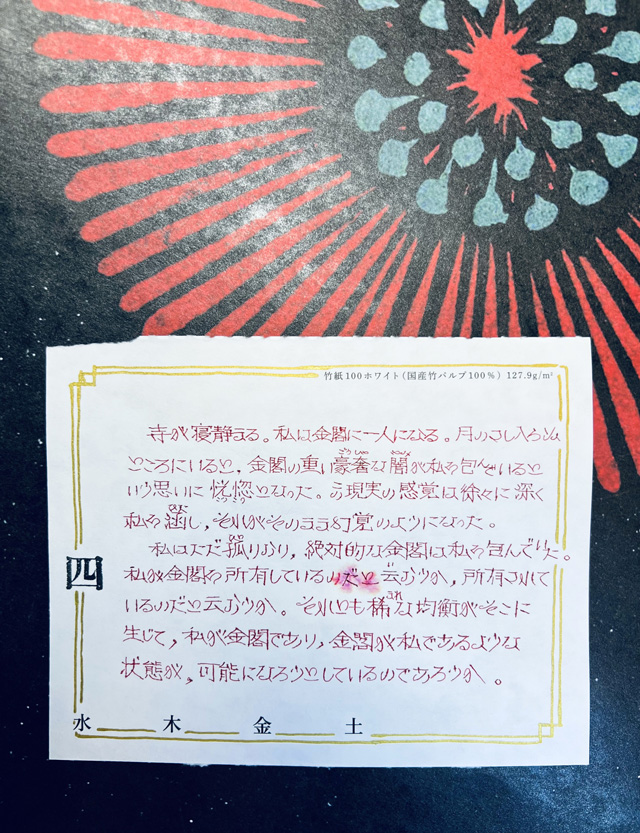 竹紙100ホワイト（国産竹パルプ100％） 127.9g/m²
寺が寝静まる。私は金閣に一人になる。月のさし入らぬ
ところにいると、金閣の重い豪奢な闇が私を包んでいると
いう思いに恍惚となった。この現実の感覚は徐々に深く
私を涵し、それがそのまま幻覚のようになった。
私はただ孤りおり、絶対的な金閣は私を包んでいた。
私が金閣を所有しているのだと云おうか、所有されて
いるのだと云おうか。それとも稀な均衡がそこに
生じて、私が金閣であり、金閣が私であるような
状態が、可能になろうとしているのであろうか。
四
水 木 金 土